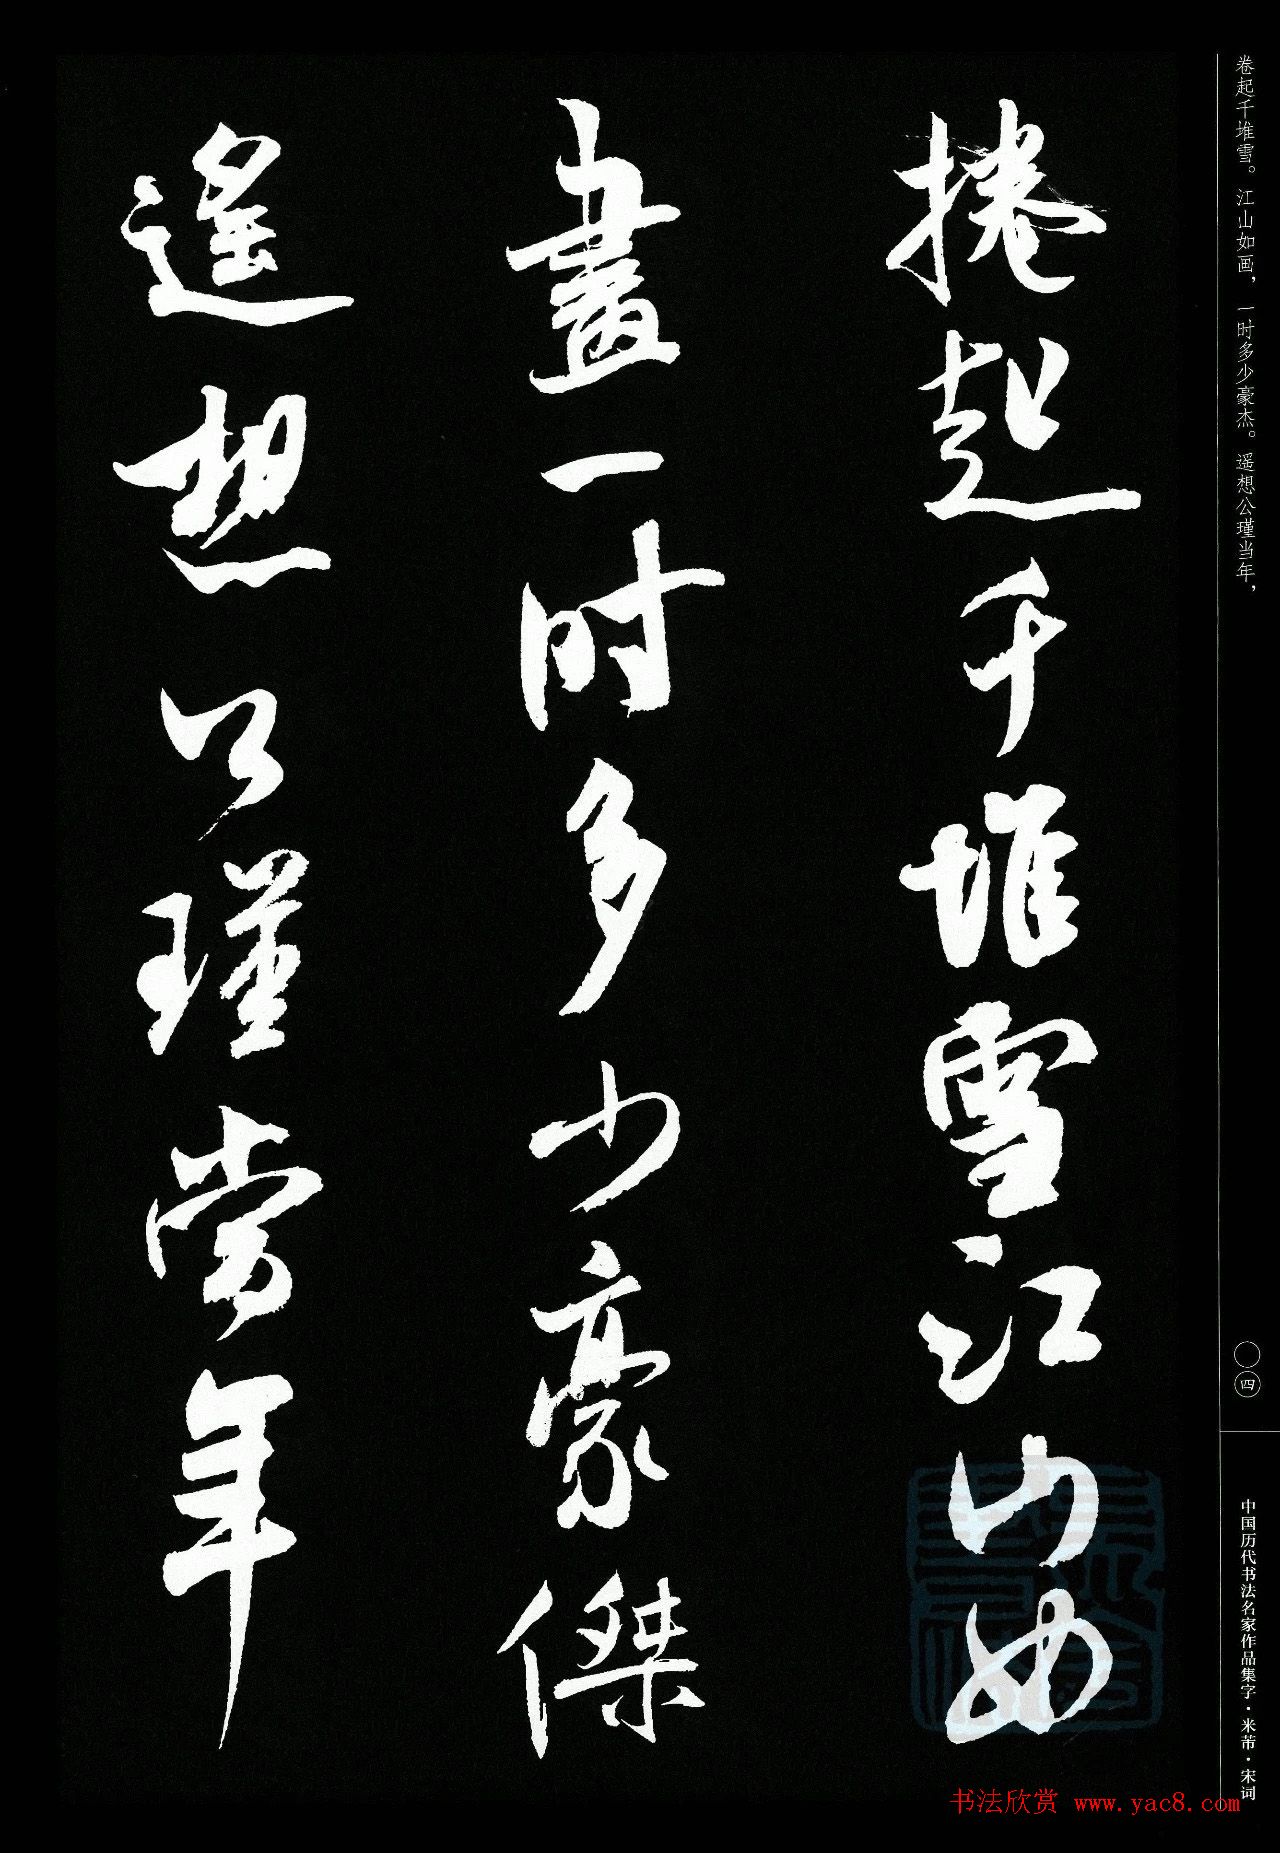 卷起千堆雪。江山如画，一时多少豪杰。遥想公瑾当年，
捲起千堆雪江山如
畫一時多少豪傑
遙想公瑾當年
〇四
中国历代书法名家作品集字·米芾·宋词
书法欣赏 www.yac8.com